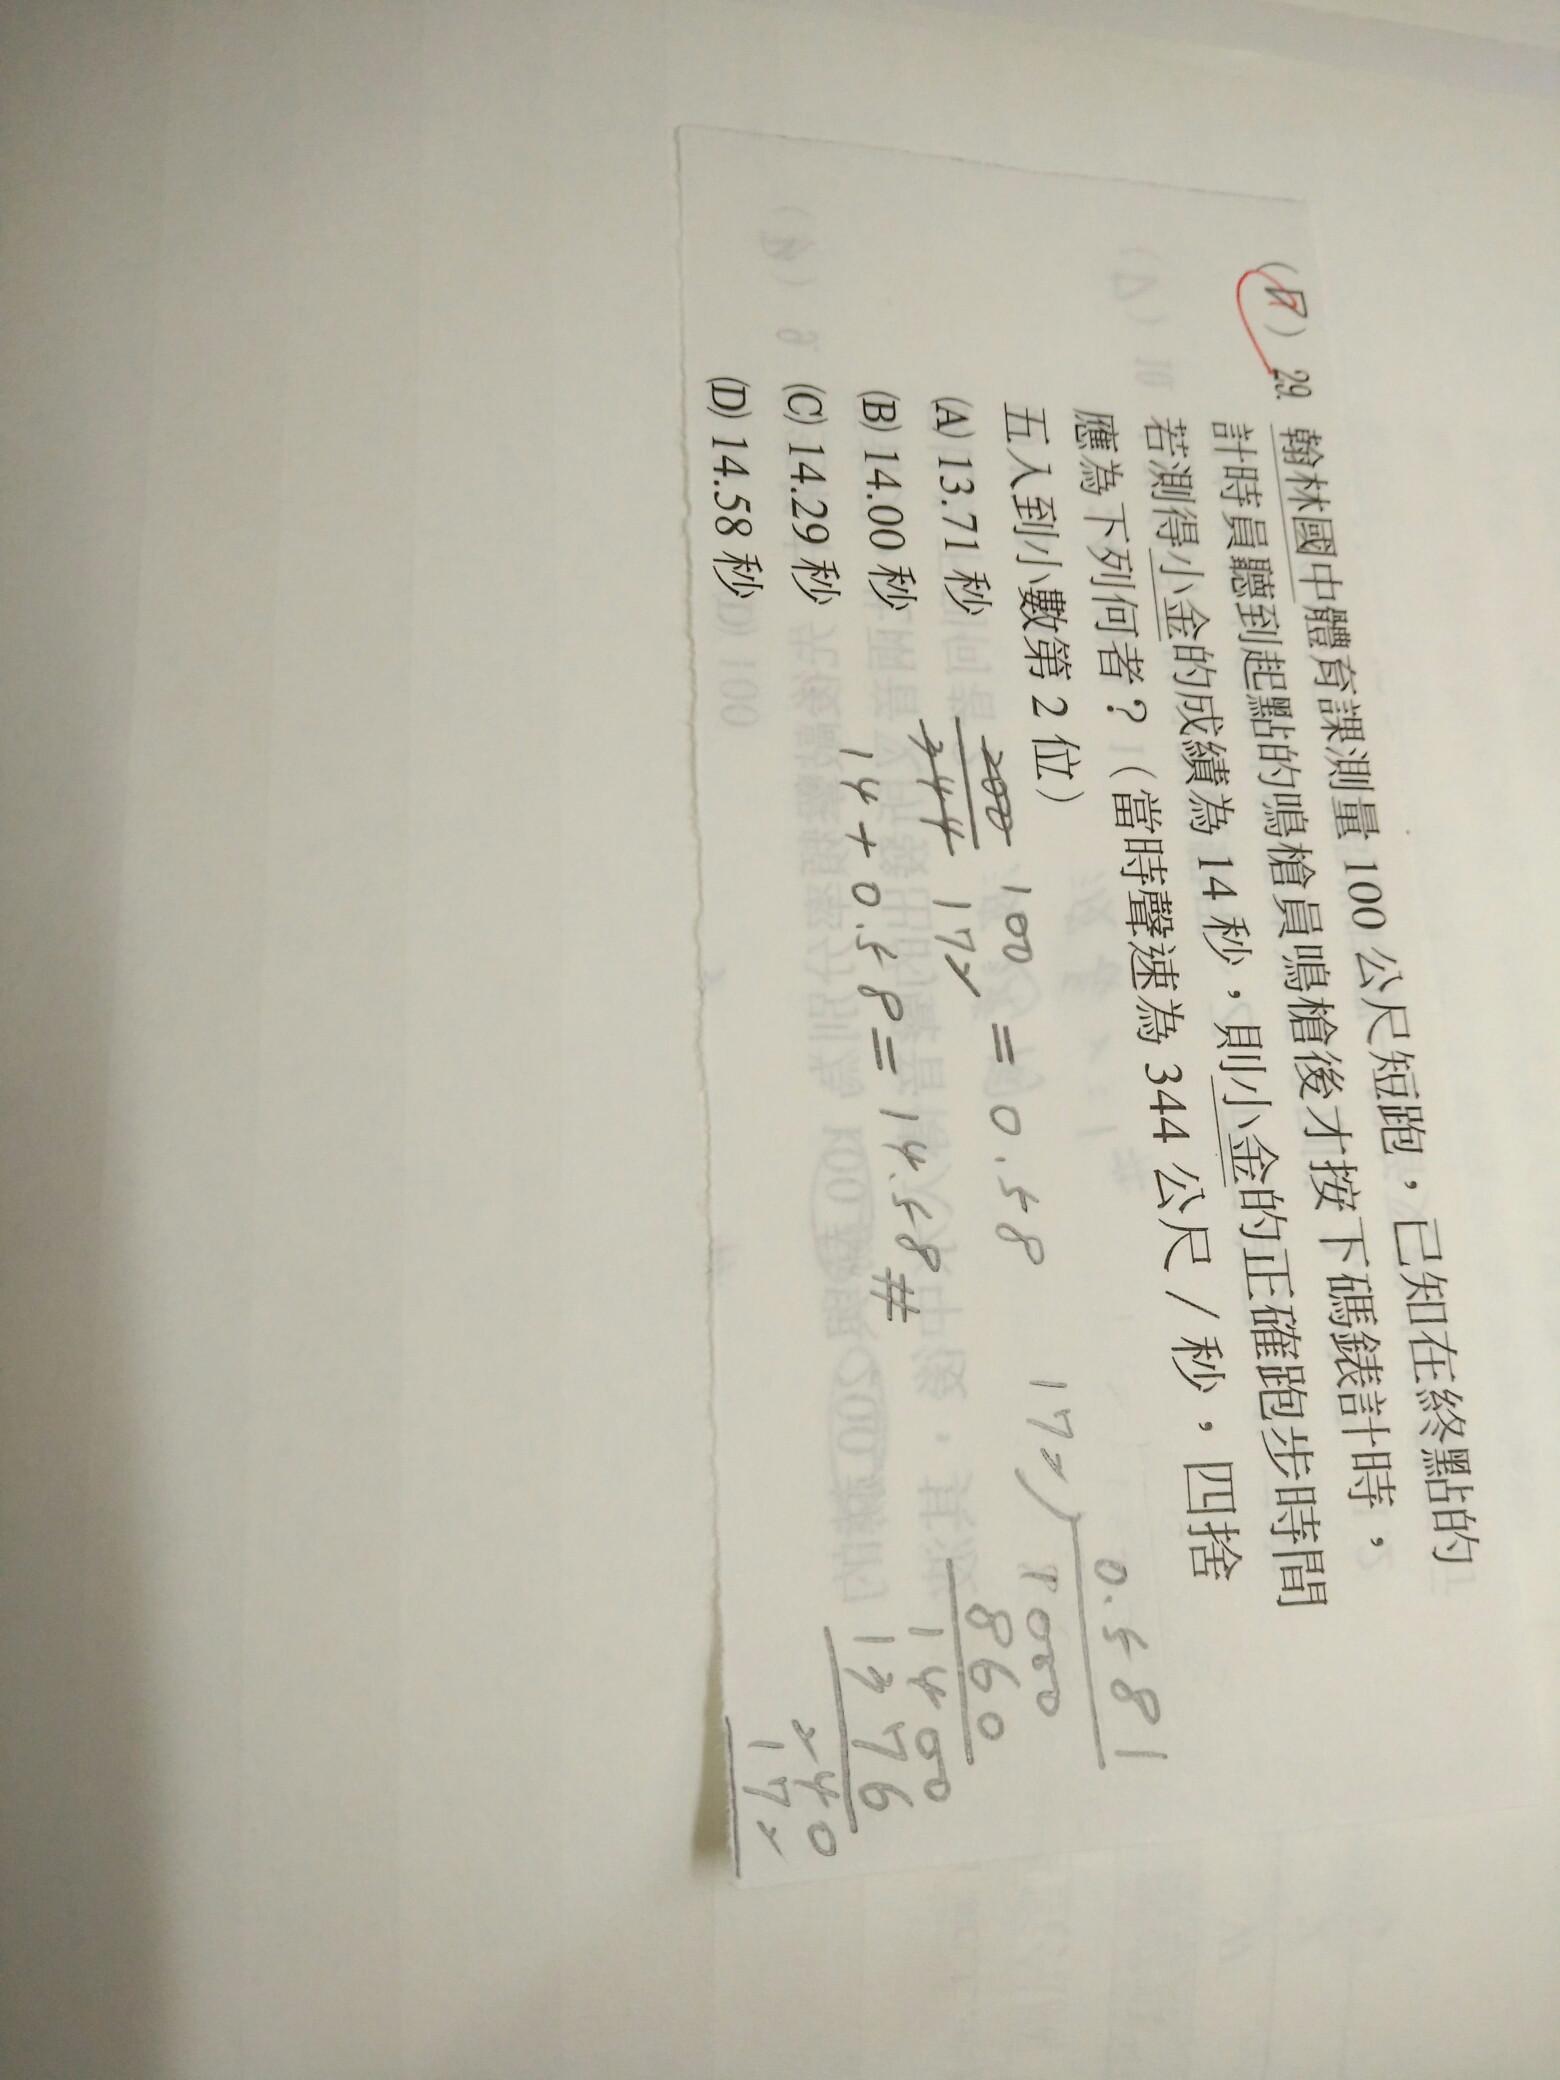 (D) 29. 翰林國中體育課測量 100 公尺短跑，已知在終點的
計時員聽到起點的鳴槍員鳴槍後才按下碼錶計時，
若測得小金的成績為 14 秒，則小金的正確跑步時間
應為下列何者？（當時聲速為 344 公尺／秒，四捨
五入到小數第 2 位）
(A) 13.71 秒
(B) 14.00 秒
(C) 14.29 秒
(D) 14.58 秒
200
344
100
172
= 0.58
14 + 0.58 = 14.58 #
0.581
172
1000
860
1400
1376
240
172